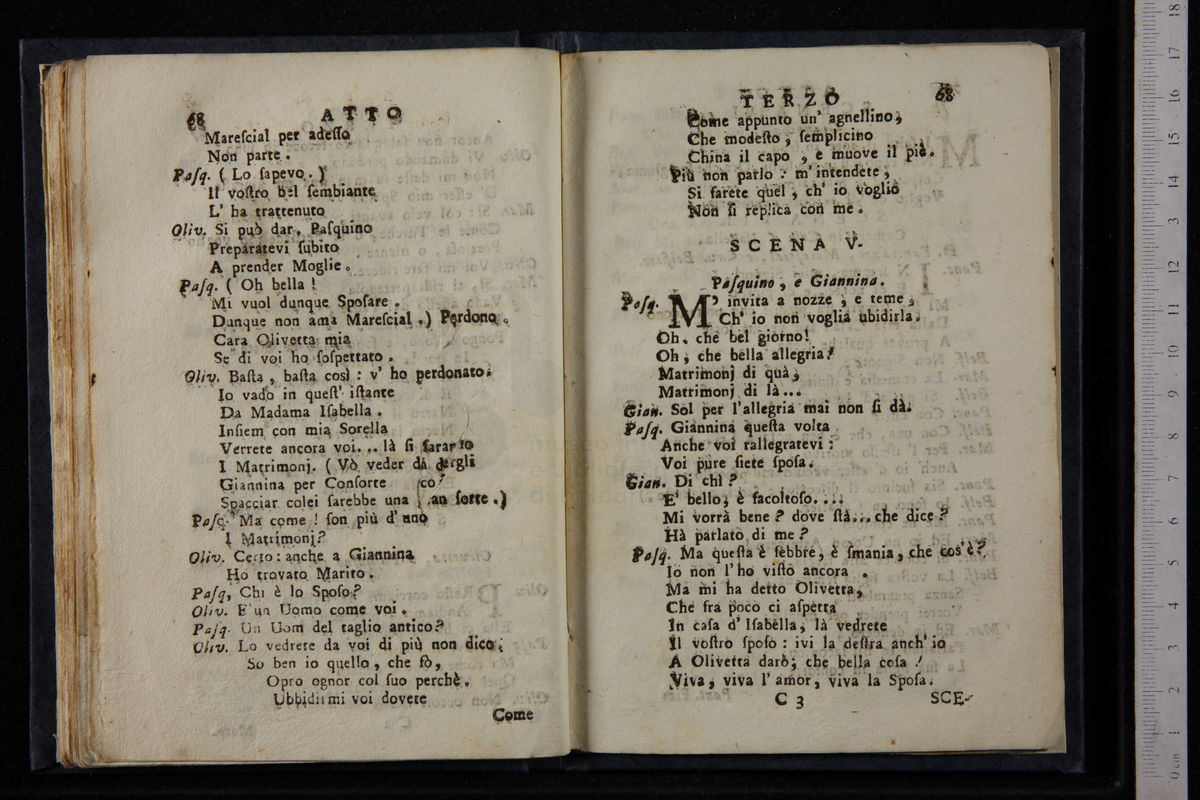 68 ATTO
Mareſcial per adeſſo
Non parte.
Paſq. ( Lo ſapevo. )
Il voſtro bel ſembiante
L' ha trattenuto
Oliv. Si può dar. Paſquino
Preparatevi ſubito
A prender Moglie.
Paſq. ( Oh bella !
Mi vuol dunque Spoſare .
Dunque non ama Mareſcial .) Perdono .
Cara Olivetta mia
Se di voi ho ſoſpettato .
Oliv. Baſta , baſta così : v' ho perdonato.
Io vado in queſt' iſtante
Da Madama Iſabella .
Inſiem con mia Sorella
Verrete ancora voi... là ſi faranno
I Matrimonj. ( Vò veder dà dargli
Giannina per Conforte
Spacciar colei ſarebbe una ſorte .)
Paſq. Ma come ! ſon più d' uno
I Matrimonj?
Oliv. Certo : anche a Giannina
Ho trovato Marito .
Paſq. Chi è lo Spoſo?
Oliv. E' un Uomo come voi .
Paſq. Un Uom del taglio antico?
Oliv. Lo vedrete da voi di più non dico;
So ben io quello , che fò,
Opro ognor col ſuo perchè .
Ubbidirmi voi dovete
Come
TERZO 68
Come appunto un' agnellino,
Che modeſto , ſemplicino
China il capo , e muove il piè.
Più non parlo : m' intendete ,
Si farete quel , ch' io voglio
Non ſi replica con me .
SCENA V.
Paſquino , e Giannina.
Paſq. M' invita a nozze , e teme ,
Ch' io non voglia ubidirla.
Oh. che bel giorno!
Oh , che bella allegria!
Matrimonj di quà ,
Matrimonj di là...
Gian. Sol per l'allegria mai non ſi dà.
Paſq. Giannina queſta volta
Anche voi rallegratevi :
Voi pure ſiete ſpoſa.
Gian. Di chì ?
E' bello, è facoltoſo....
Mi vorrà bene ? dove ſtà... che dice ?
Hà parlato di me ?
Paſq. Ma queſta è febbre, è ſmania, che cos' è?
Io non l' ho viſto ancora .
Ma mi ha detto Olivetta,
Che fra poco ci aſpetta
In caſa d' Iſabella, là vedrete
Il voſtro ſpoſo : ivi la deſtra anch' io
A Olivetta darò; che bella coſa !
Viva, viva l' amor, viva la Spoſa.
C 3 SCE-